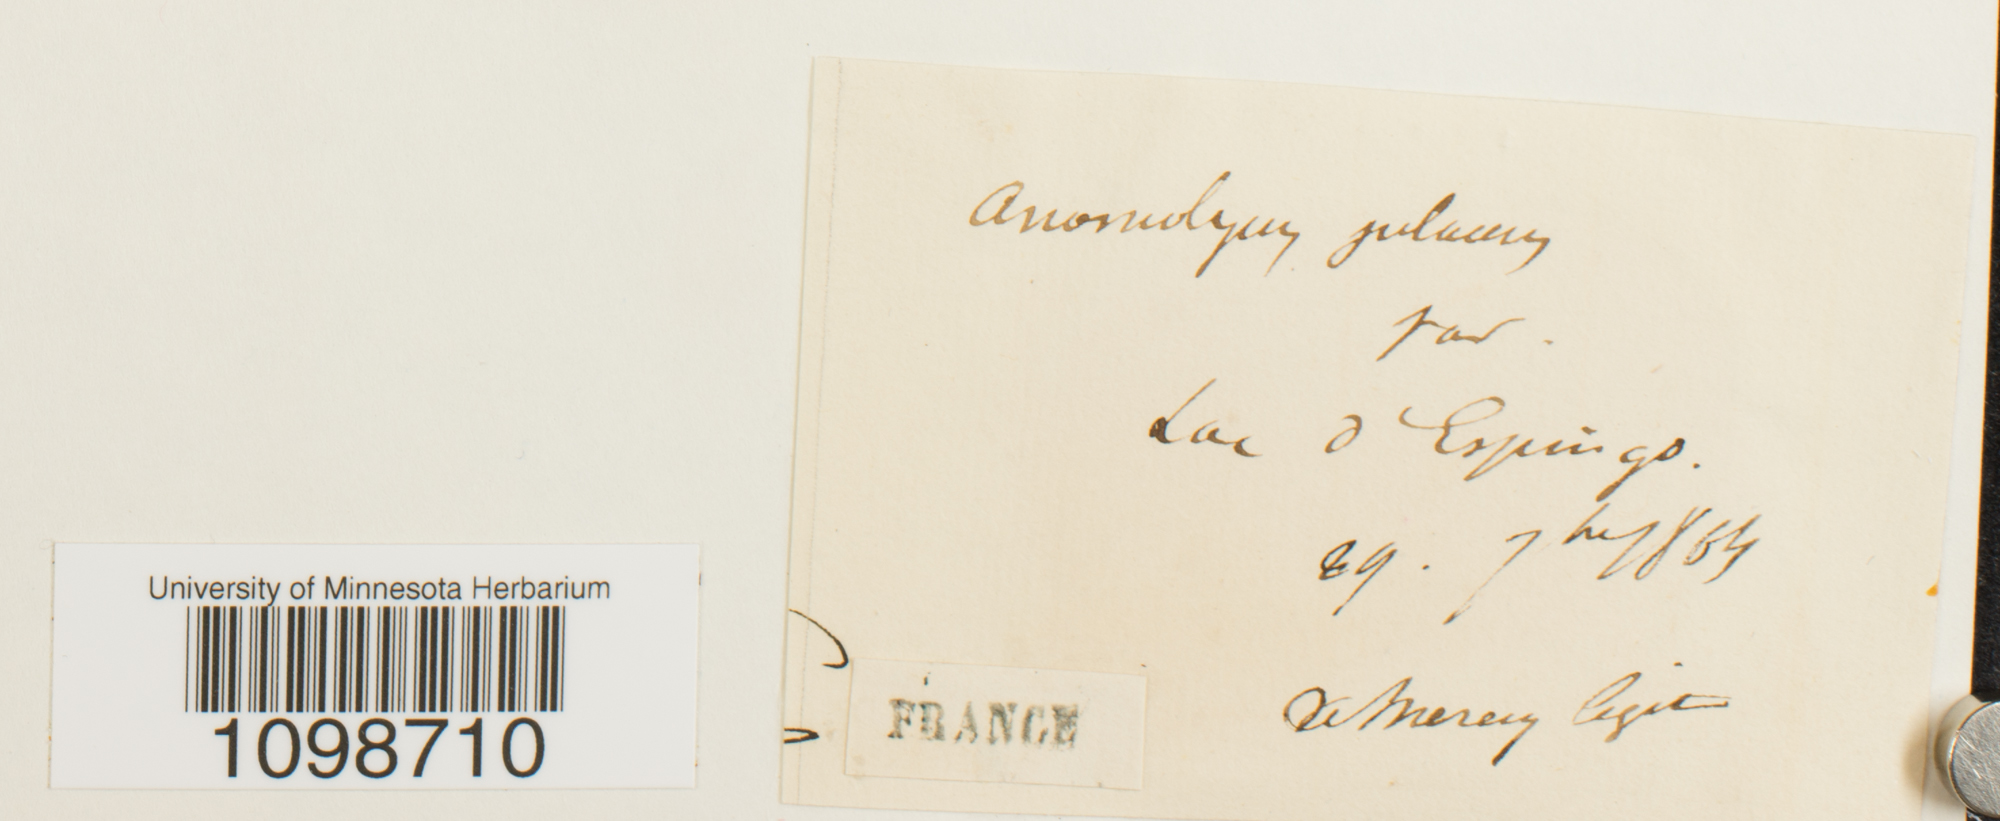 Anomobryum julaceum
var.
Lac d'Espingo.
29. 7bre 1864
De Mercey legit
FRANCE
University of Minnesota Herbarium
1098710